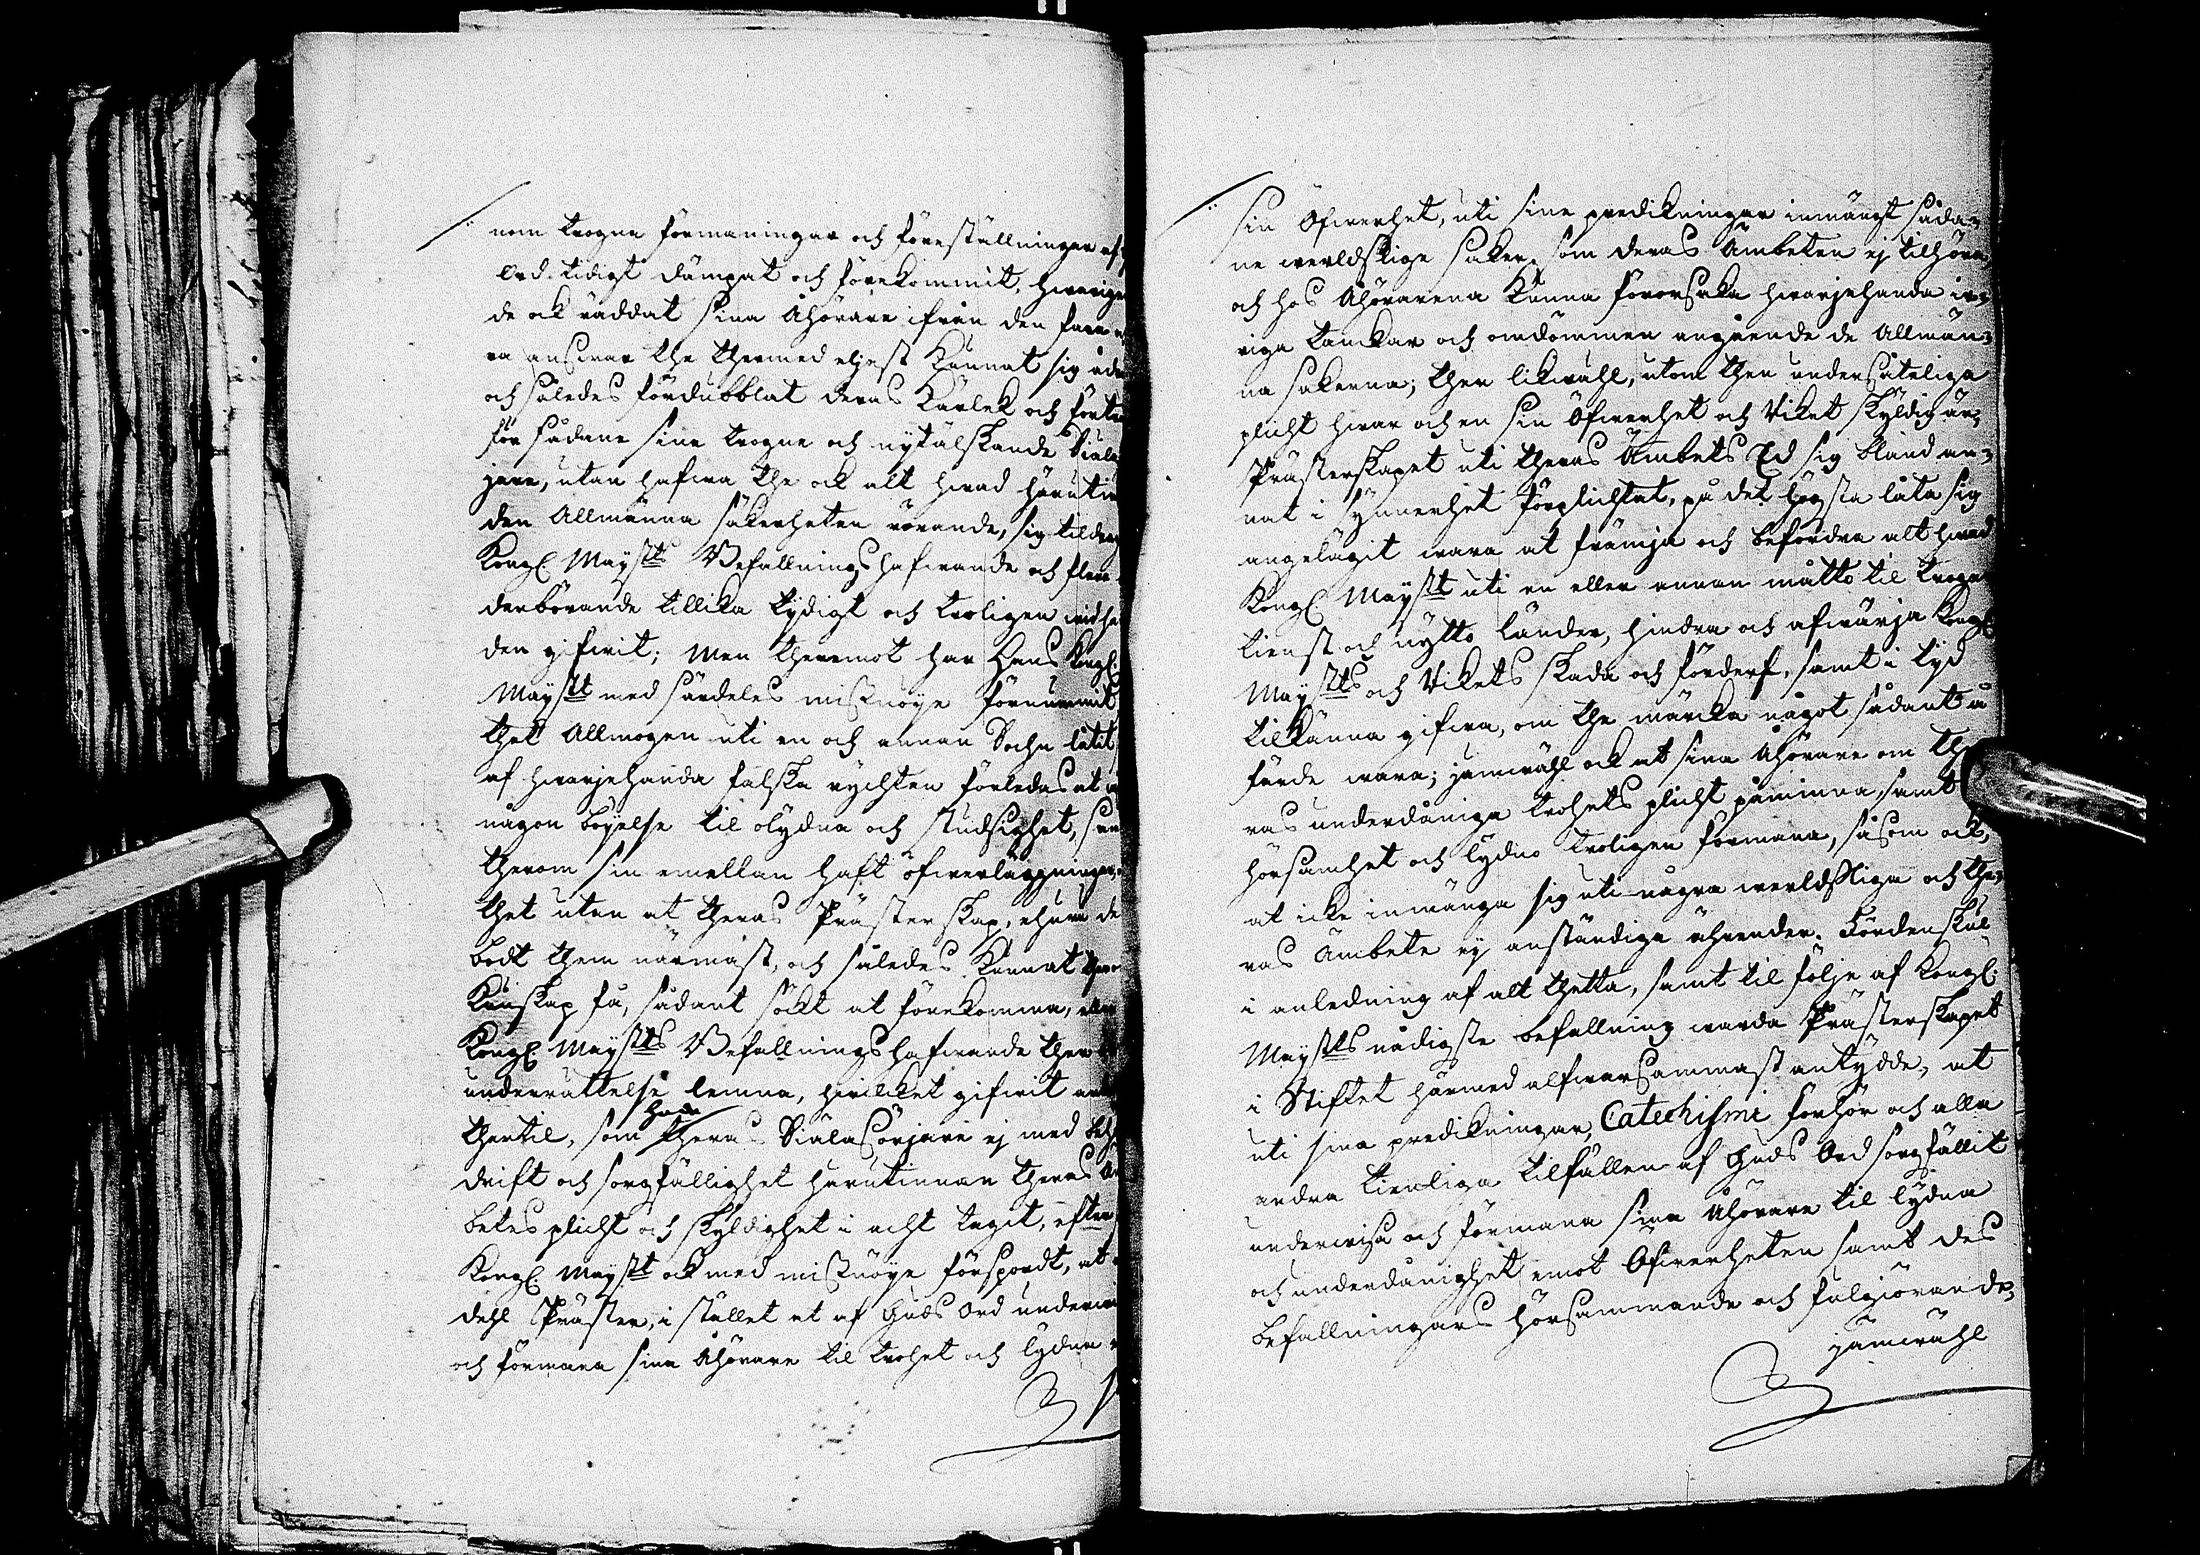 nom trogna förmaningar och föreställningar af
ord tidigt dämpat och förekommit, hwarige
de ock räddat sina Åhörare ifrån den fara
ra answar the thermed eljest kunnat sig
och således fördubblat deras Kärlek och förtro
för sådane sine trogne och nytälskande Siäla
jare, utan hafwa the ock alt hwad härutin
den Allmänna säkerheten rörande, sig tildrag
Kongl. Maysts Befallningshafwande och flere
derbörande tillika tydigt och troligen wid ha
den gifwit; Men theremot har Hans Kongl.
Mayst med särdeles misznöye förnummit
thet Allmogen uti en och annan Sochn låtit
af hwarjehanda falska rychten förledas at
någon böyelse til olydna och studsighet, sam
therom sin emellan haft öfwerläggningar,
thet utan at theras Prästerskap, ehuru de
bodt them närmast, och således kunnat ther
Kunskap få, sådant sökt at förekomma, eller
Kongl. Maysts Befallningshafwande ther
underrättelse lemna, hwilket gifwit anl
thertil, som hade theras Siälasörjare ej med beh
drift och sorgfällighet härutinnan theras Äm
betes plicht och skyldighet i acht tagit, efter
Kongl. Mayst ock med misznöye försport, at
dehl Präster, i stället at af Guds Ord underwi
och förmana sina Åhörare til trohet och lydna
sin Öfwerhet, uti sine predikningar inmängt såda-
ne werldslige saker, som deras Ämbeten ej tilhöra
och hos Åhörarena kunna förorsaka hwarjehanda ir-
riga tanckar och omdömmen angående de Allmän-
na sakerna; ther likwähl, utom then undersåteliga
plicht hwar och en sin Öfwerhet och Riket skyldig är,
Prästerskapet uti theras Ämbets Ed sig bland an-
nat i synnerhet förplichtat, på det högsta låta sig
angelägit wara at främja och befordra alt hwad
Kongl. Mayst uti en eller annan måtto til trogen
tienst och nytto länder, hindra och afwärja Kongl.
Maysts och Rikets skada och förderf, samt i tyd
tilkänna gifwa, om the märcka något sådant å
färde wara; jämwähl ock at sina Åhörare om the
ras underdåniga trohets plicht påminna, samt
hörsamhet och lydno troligen förmana, såsom ock,
at icke inmänga sig uti några werldsliga och the-
ras Ämbete ej anständiga ährender. Fördenskul
i anledning af alt thetta, samt til följe af Kongl.
Maysts nådigste befallning warda Prästerskapet
i Stiftet härmed alfwarsammast antydde, at
uti sina predikningar, Catechismi förhör och alla
andra tienliga tilfällen af Guds Ord sorgfällit
underwisa och förmana sina Åhörare til lydna
och underdånighet emot Öfwerheten samt des
befallningars hörsammande och fulgiörande,
jämwähl